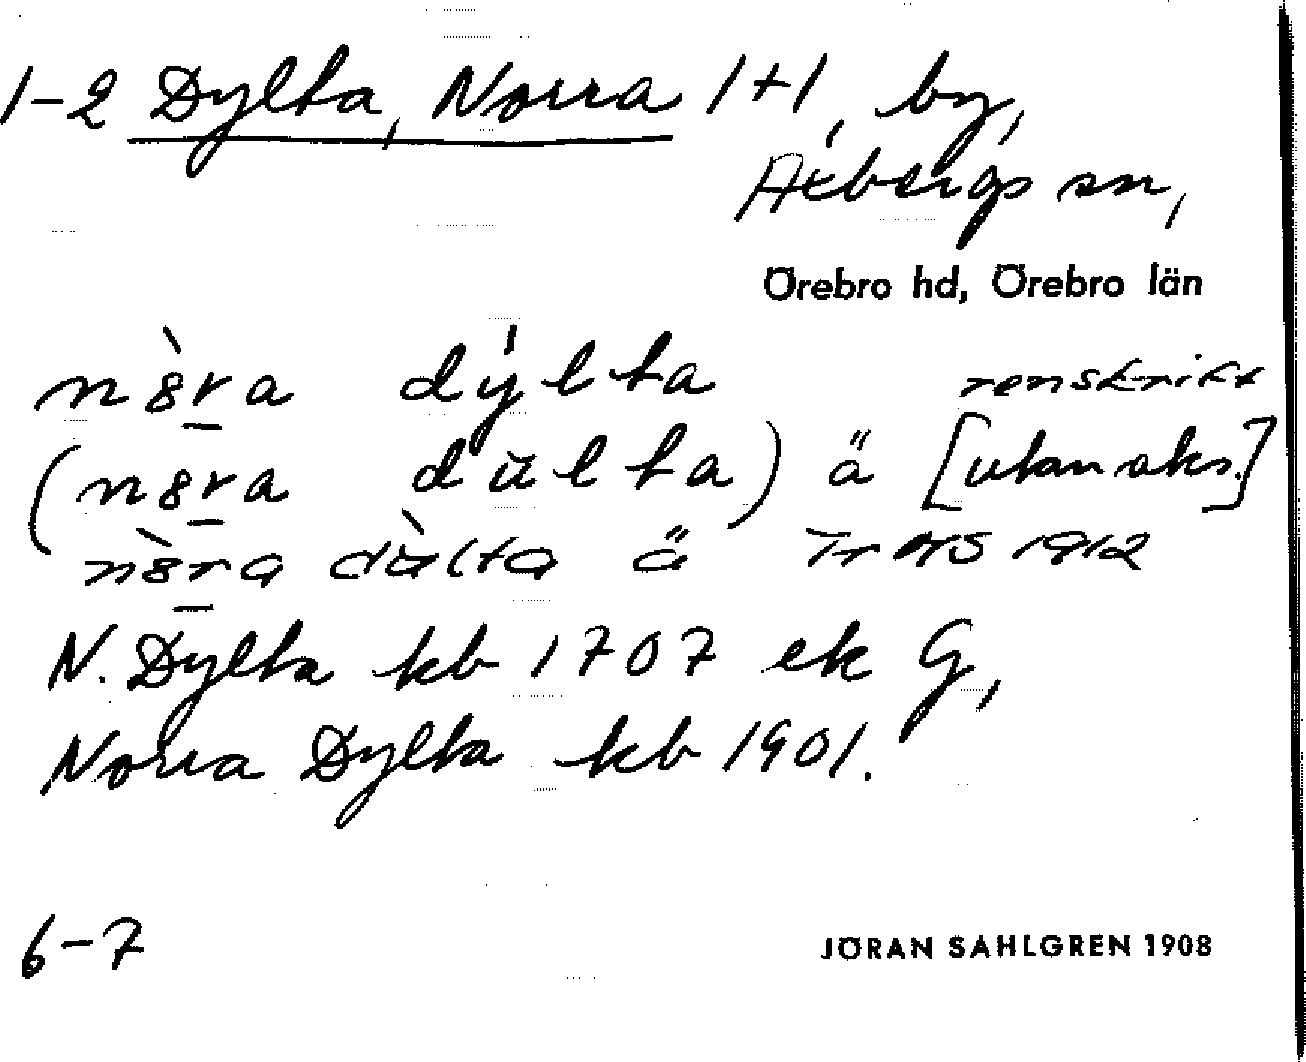 1-2 Dylta, Norra 1+1, by,
Axbergs sn,
Örebro hd, Örebro län
nò̀8ra dýlta renskrift
(n8ra dŭlta) ä [utan aks.]
nò8ra dàlta ä 1912
N. Dylta kb 1707 ek G,
Norra Dylta kb 1901.
6-7 JÖRAN SAHLGREN 1908